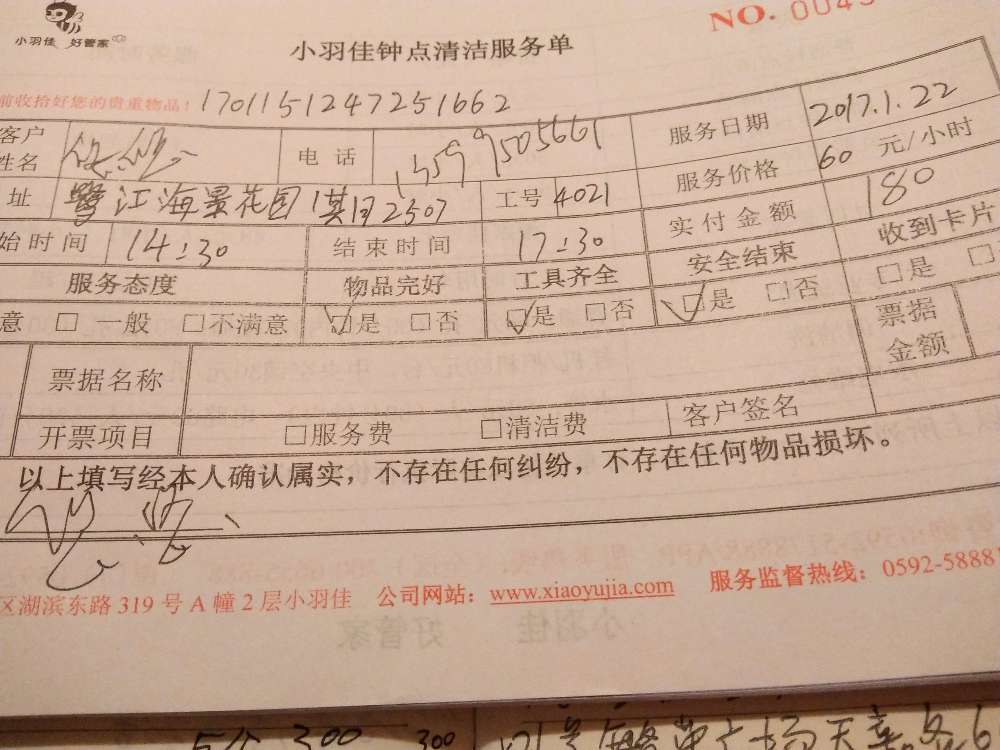 小羽佳 好管家
NO. 0045
小羽佳钟点清洁服务单
前收拾好您的贵重物品！ 1701151247251662
客户姓名 电话 13599505661 服务日期 2017.1.22
址 鹭江海景花园1期2507 工号 4021 服务价格 60 元/小时
始时间 14:30 结束时间 17:30 实付金额 180
服务态度 物品完好 工具齐全 安全结束 收到卡片
意 □ 一般 □不满意 □是 □否 □是 □否 □是 □否 □是 □
票据名称 票据金额
开票项目 □服务费 □清洁费 客户签名
以上填写经本人确认属实，不存在任何纠纷，不存在任何物品损坏。
区湖滨东路 319 号 A 幢 2 层小羽佳 公司网站：www.xiaoyujia.com 服务监督热线：0592-5888
小羽佳 好管家
300 300